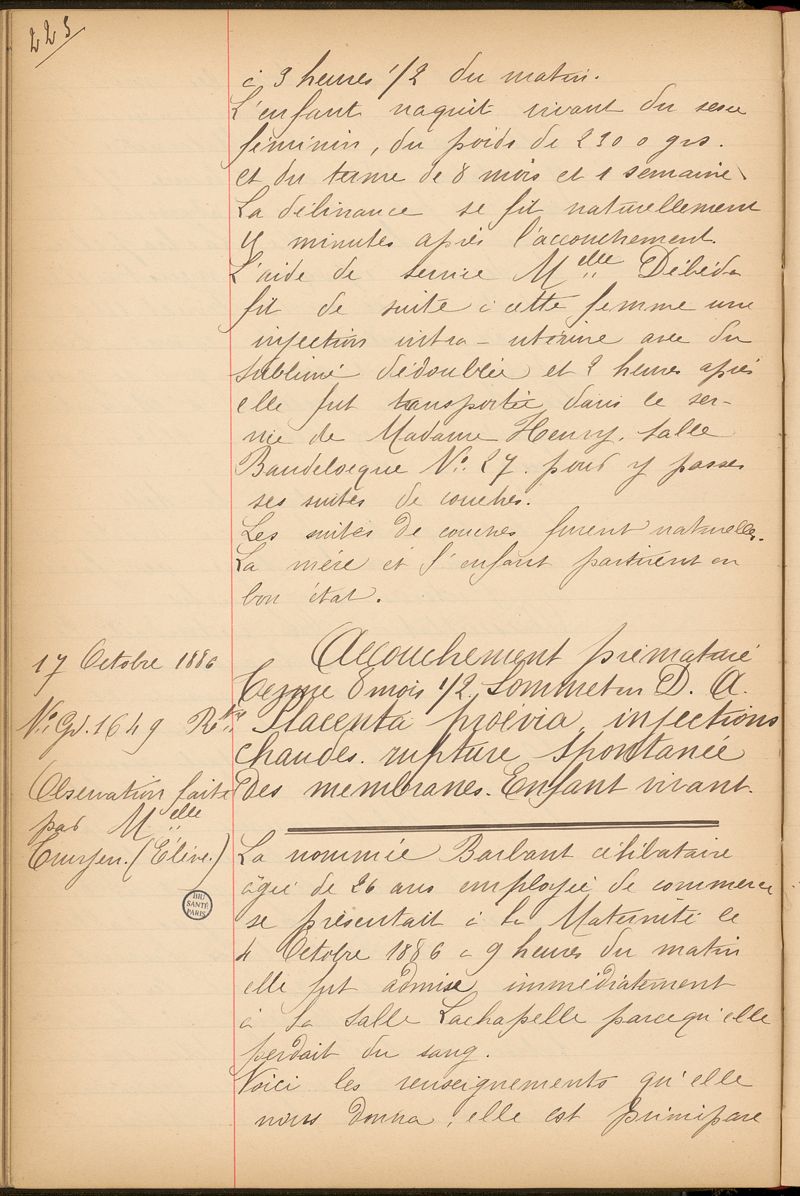 223
à 3 heures 1/2 du matin.
L'enfant naquit vivant du sexe
féminin, du poids de 2300 grs.
et du terme de 8 mois et 1 semaine.
La délivrance se fit naturellement
minutes après l'accouchement.
L'aide de service Melle Débéda
fit de suite à cette femme une
injection intra-utérine avec du
sublimé dédoublée et 2 heures après
elle fut transportée dans le ser-
vice de Madame Henry. salle
Baudelocque No. 27. pour y passer
ses suites de couches.
Les suites de couches furent naturelles.
La mère et l'enfant partirent en
bon état.
17 Octobre 1886
No. Gl. 1649
Observation faite
par Melle
(Elève.)
Accouchement prématuré
Terme 8 mois 1/2. Sommet en D. A.
Placenta proevia, injections
chaudes. rupture spontanée
des membranes. Enfant vivant.
La nommée Barbant célibataire
âgée de 26 ans employée de commerce
se présentait à la Maternité le
4 Octobre 1886 à 9 heures du matin
elle fut admise immédiatement
à la salle Lachapelle parcequ'elle
perdait du sang.
Voici les renseignements qu'elle
nous donna, elle est primipare
BIU
SANTÉ
PARIS